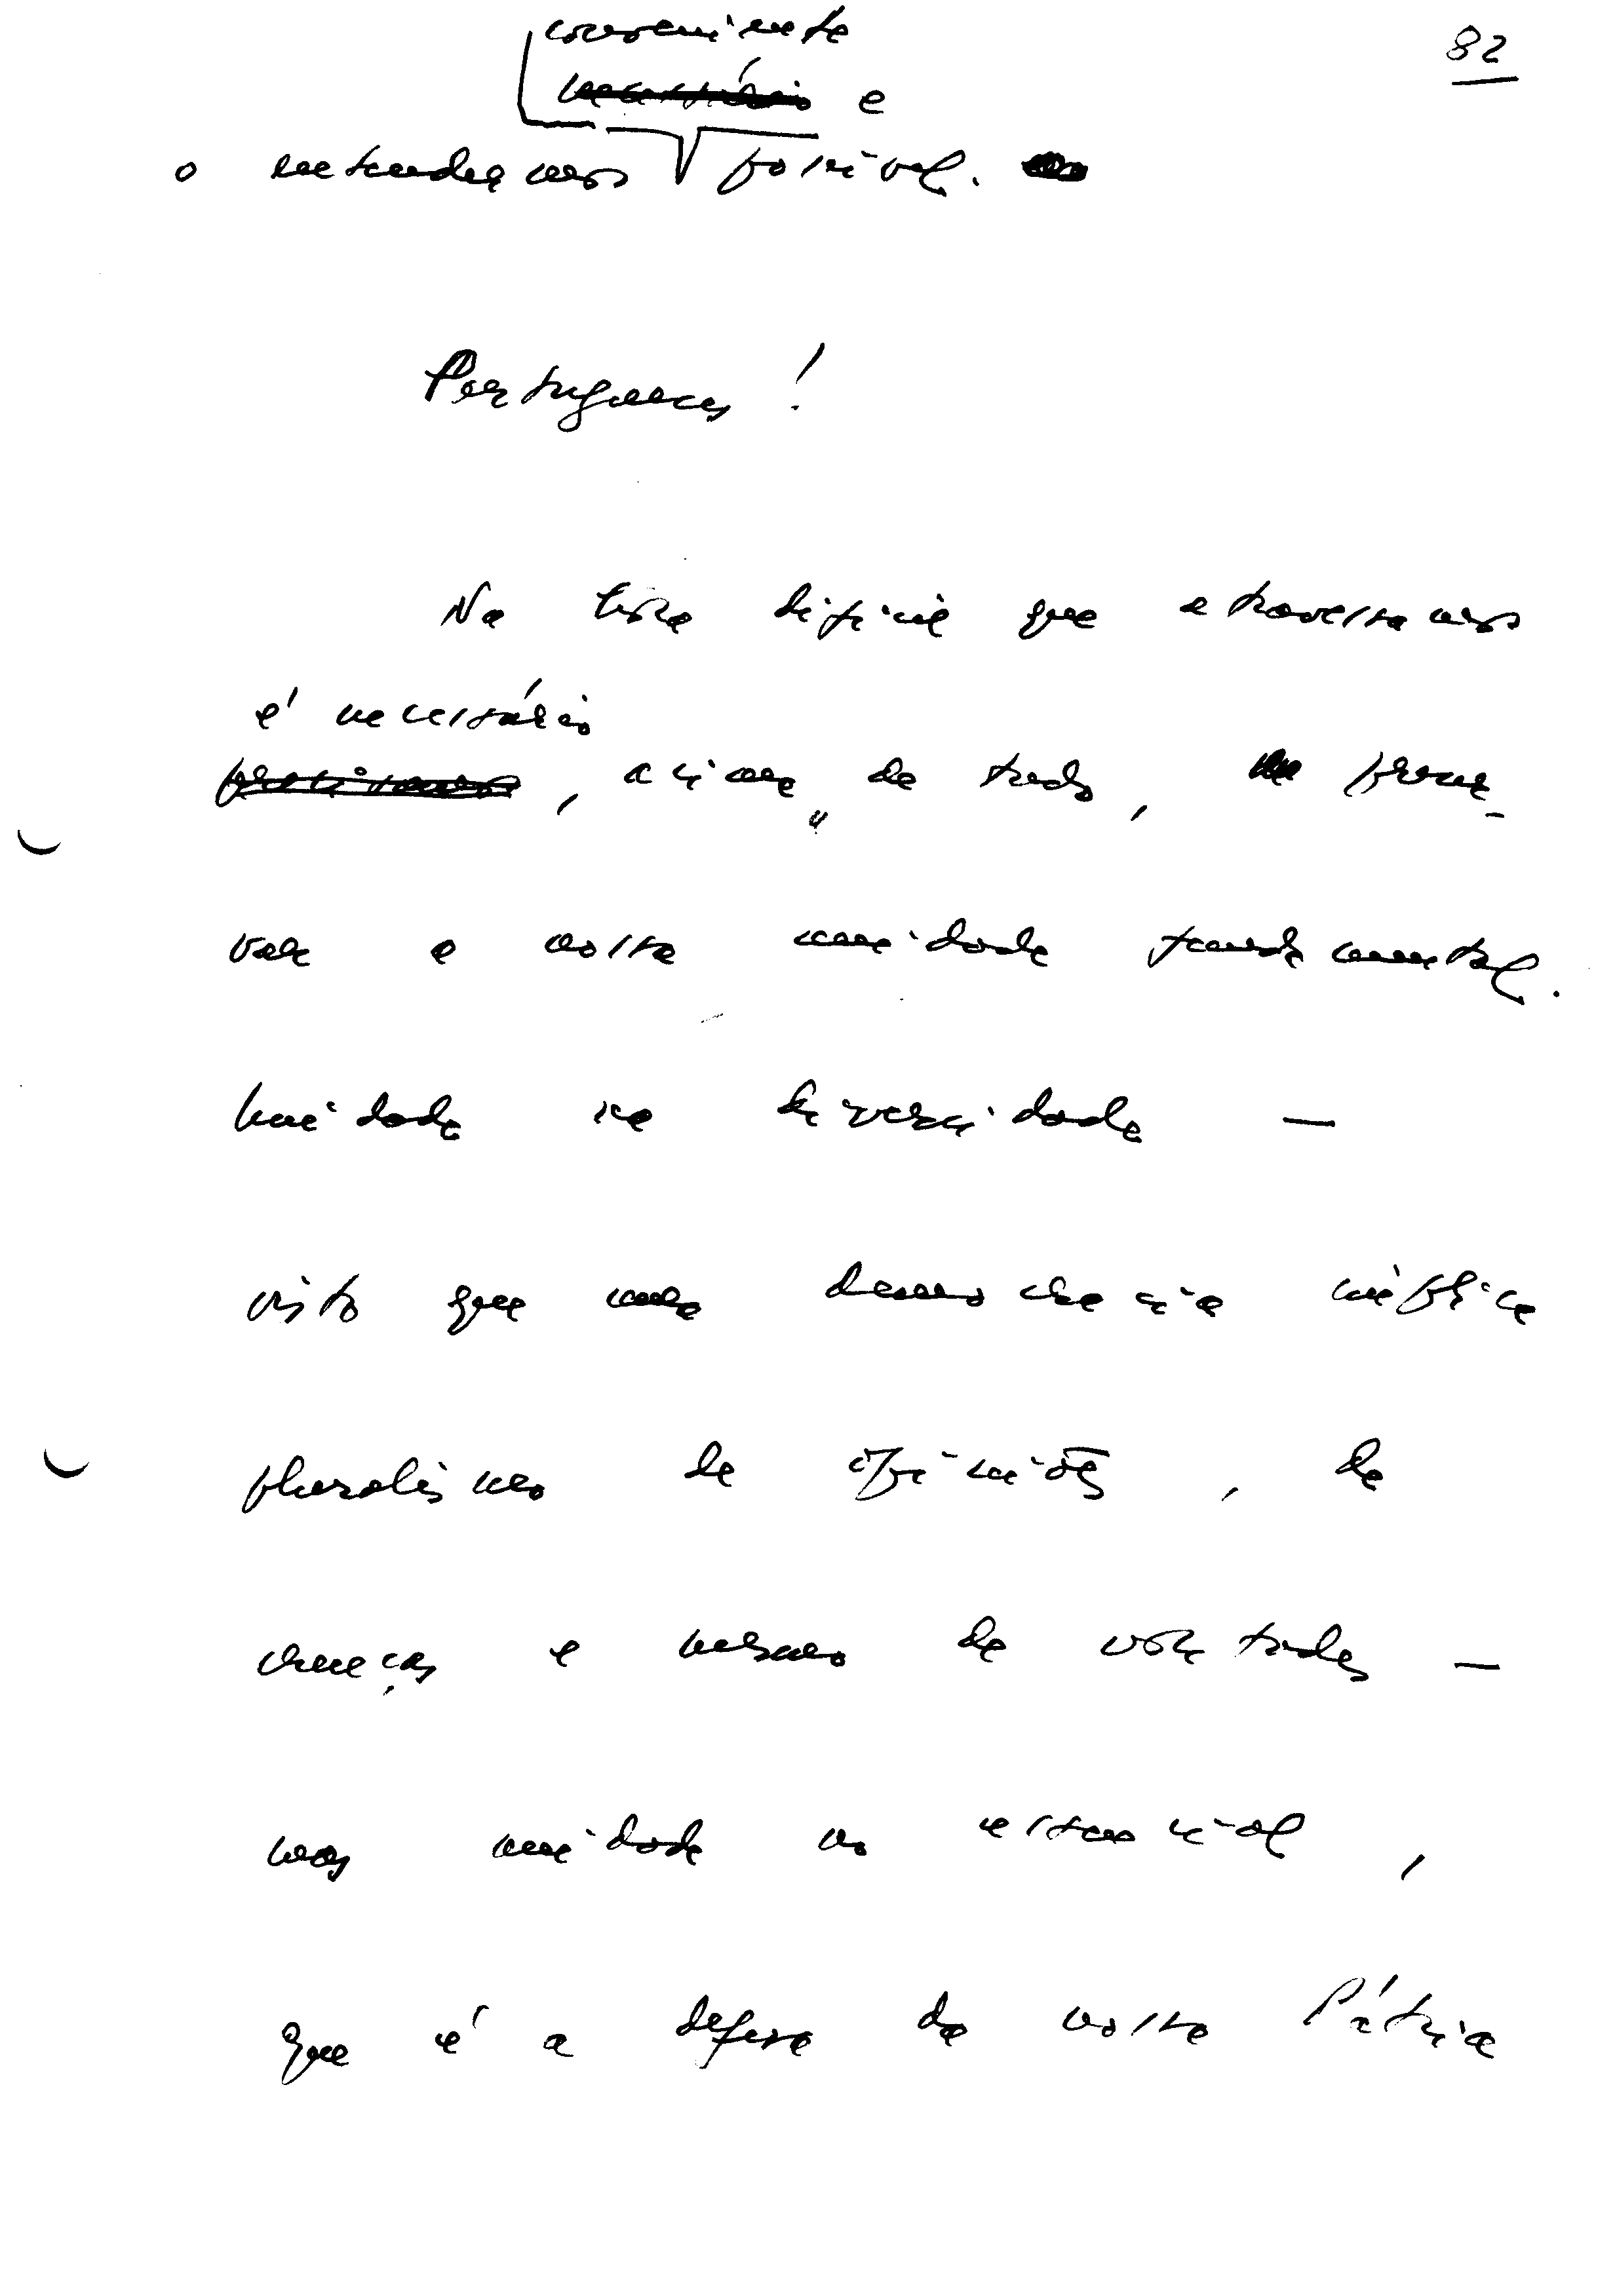 82
conveniente
necessário e
o entendermos possível.
Portugueses!
Na hora difícil que atravessamos
é necessário
precisamos, acima de tudo, preser-
var a nossa unidade fundamental.
Unidade na diversidade —
visto que uma democracia implica
pluralismo de opiniões, de
crenças e mesmo de vontades —
mas unidade no essencial,
que é a defesa da nossa Pátria